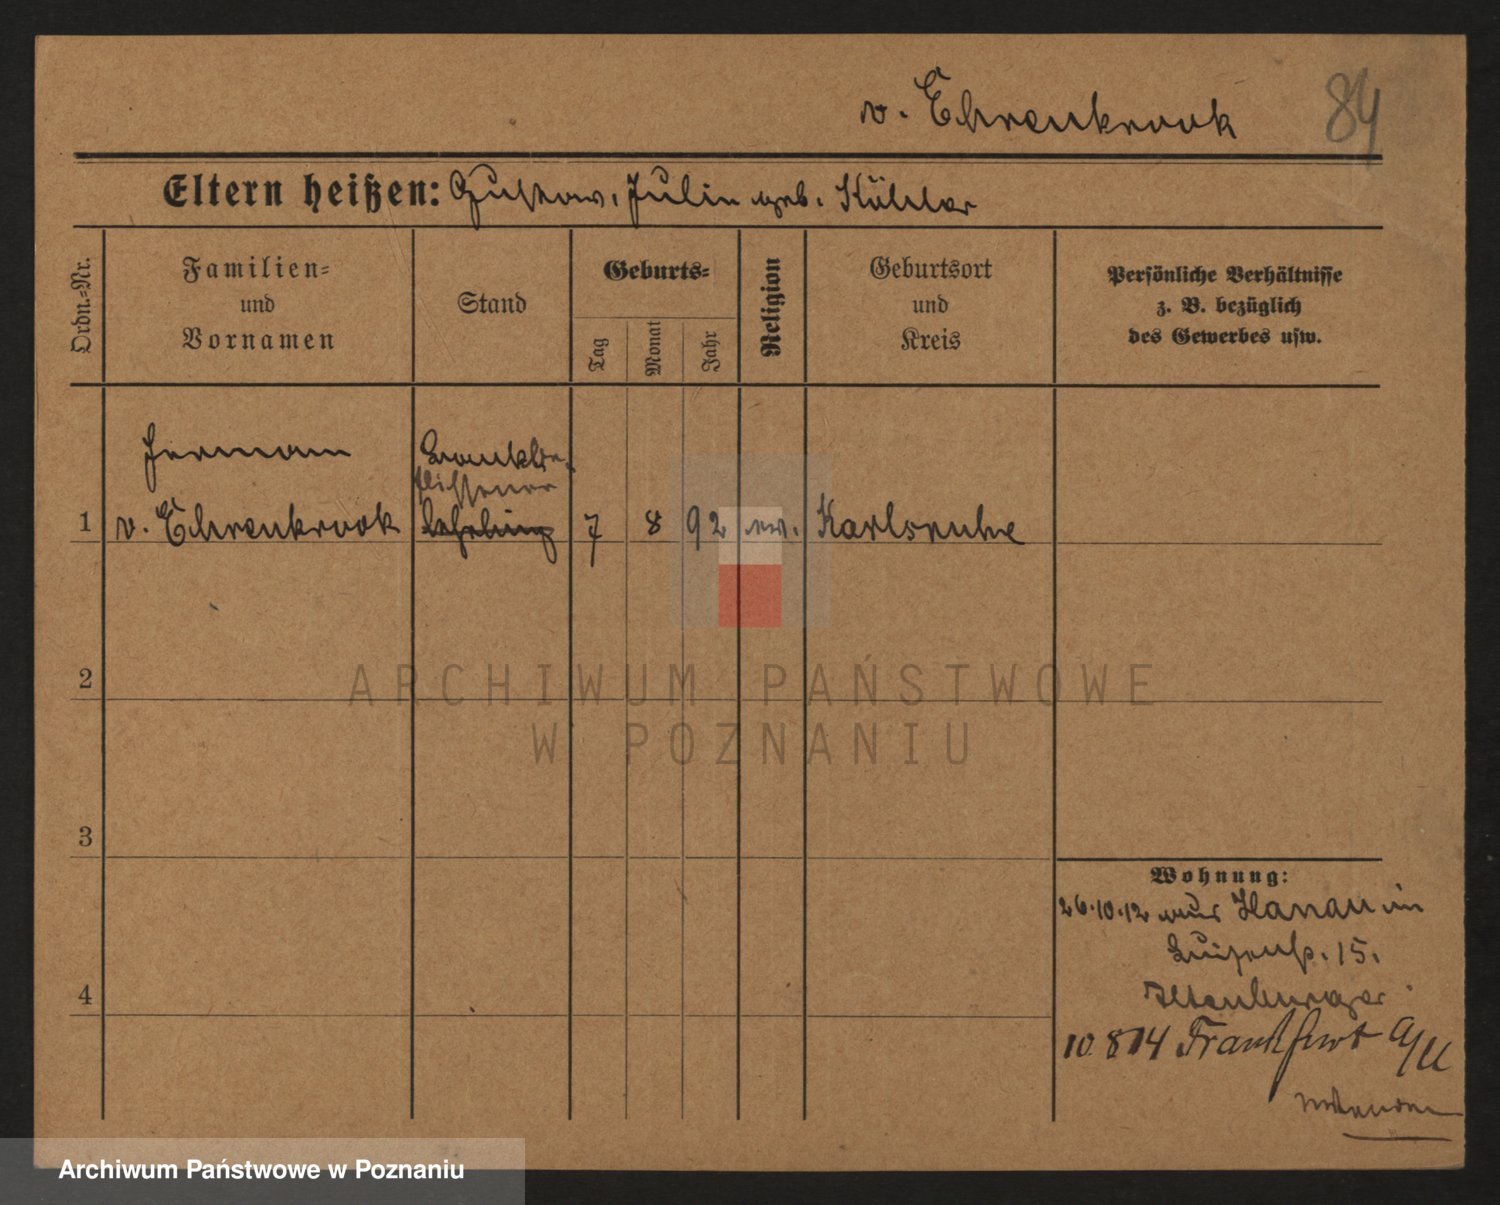 v. Ehrenkrook 84
Eltern heißen: Gustav, Julie geb. Köhler
Ordn.=Nr.
Familien=
und
Vornamen
Stand
Geburts=
Tag
Monat
Jahr
Religion
Geburtsort
und
Kreis
Persönliche Verhältnisse
z. B. bezüglich
des Gewerbes usw.
Hermann
v. Ehrenkrook
Bankbe-
flissener
lehrling
1 7 8 92 ev. Karlsruhe
2
3
4
Wohnung:
26.10.12 aus Hanau in
Luisenstr. 15.
10.8 14 Frankfurt a/M
ARCHIWUM PAŃSTWOWE
W POZNANIU
Archiwum Państwowe w Poznaniu